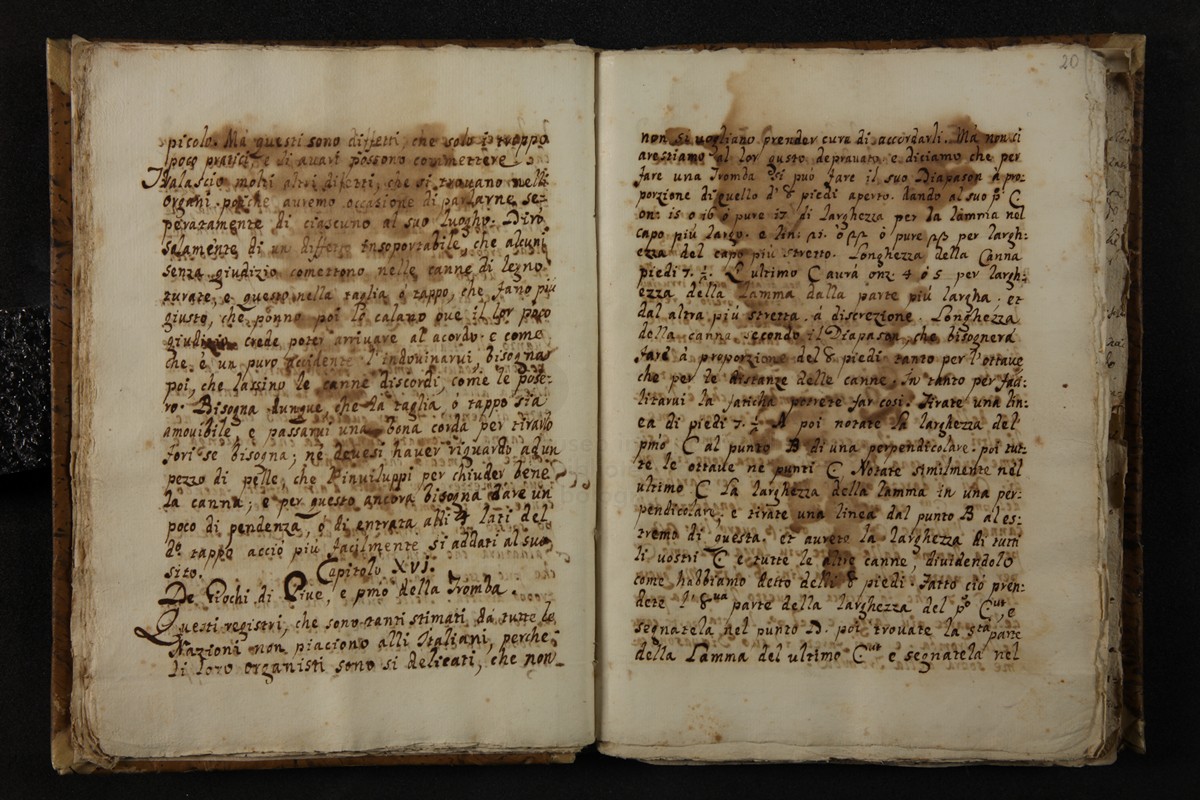 picolo. Mà questi sono diffetti, che solo i troppo
poco pratici, e di auari possono commettere
Tralascio molti altri difetti, che si trouano nelli
Organi, poiche auremo occasione di parlarne se-
peratamente di ciascuno al suo luogho. Dirò
solamente di un diffetto insoportabile, che alcuni
senza giudizio comettono nelle canne di legno
turate, e questo nella taglia ò tappo, che fano più
giusto, che ponno poi lo calano oue il lor poco
giudizio crede poter arriuare al acordo, e come
che è un puro accidente l'indouinarui, bisogna
poi, che lassino le canne discordi, come le pose-
ro. Bisogna dunque, che la taglia ò tappo sia
amouibile, e passarui una bona corda per tirarlo
fori se bisogna; ne deuesi hauer riguardo ad un
pezzo di pelle, che l'inuiluppi per chiuder bene
la canna; e per questo ancora bisogna dare un
poco di pendenza, ò di entrata alli 4 lati del
do tappo acciò più facilmente si addati al suo
sito.
Capitolo XVI.
De Giochi di Piue, e pmo della Tromba.
Questi registri, che sono tanti stimati da tutte le
Nazioni non piaciono alli Italiani, perche
li loro organisti sono si delicati, che non
20
non si uogliano prender cure di accordarli. Mà non si
arestiamo al lor gusto deprauato, e diciamo che per
fare una Tromba si può fare il suo Diapason à pro-
porzione di quello d' 8 piedi aperto. dando al suo po C
onz: 15 o 16 ò pure 17 di larghezza per la lamma nel
capo più largo. e lin: ò pure per largh:
ezza del capo più stretto. Longhezza della Canna
piedi 7. 1/2. L'ultimo C aurà onz. 4 ò 5 per largh:
ezza della lamma dalla parte più largha. et
dal altra più stretta. à discrezione. Longhezza
della canna secondo il Diapason, che bisognerà
fare à proporzione del 8 piedi tanto per l'ottaue,
che per le distanze delle canne. In tanto per faci-
litarui la faticha potrete far cosi. Tirate una lin-
ea di piedi 7. 1/2 A poi notate la larghezza del
pmo C al punto B di una perpendicolare. poi tut-
te le ottaue ne punti C Notate similmente nel
ultimo C la larghezza della lamma in una per-
pendicolare, e tirate una linea dal punto B al es-
tremo di questa. et aurete la larghezza di tutti
li uostri C e tutte le altre canne, diuidendolo
come habbiamo detto delli 8 piedi. Fatto ciò pren-
dete l' 8ua parte della larghezza del po Cut, e
segnatela nel punto D. poi trouate la sta parte
della Lamma del ultimo Cut e segnatela nel